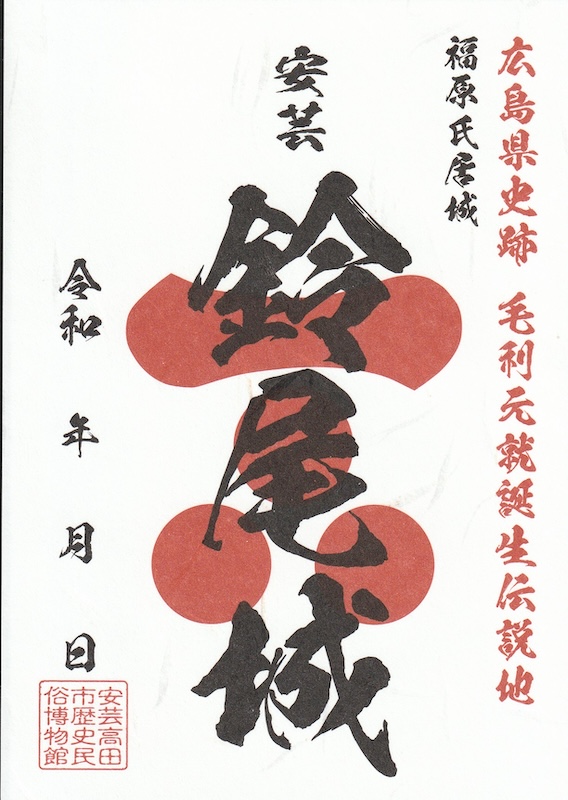 広島県史跡 毛利元就誕生伝説地
福原氏居城
安芸
鈴尾城
令和 年 月 日
安芸高田
市歴史民
俗博物館